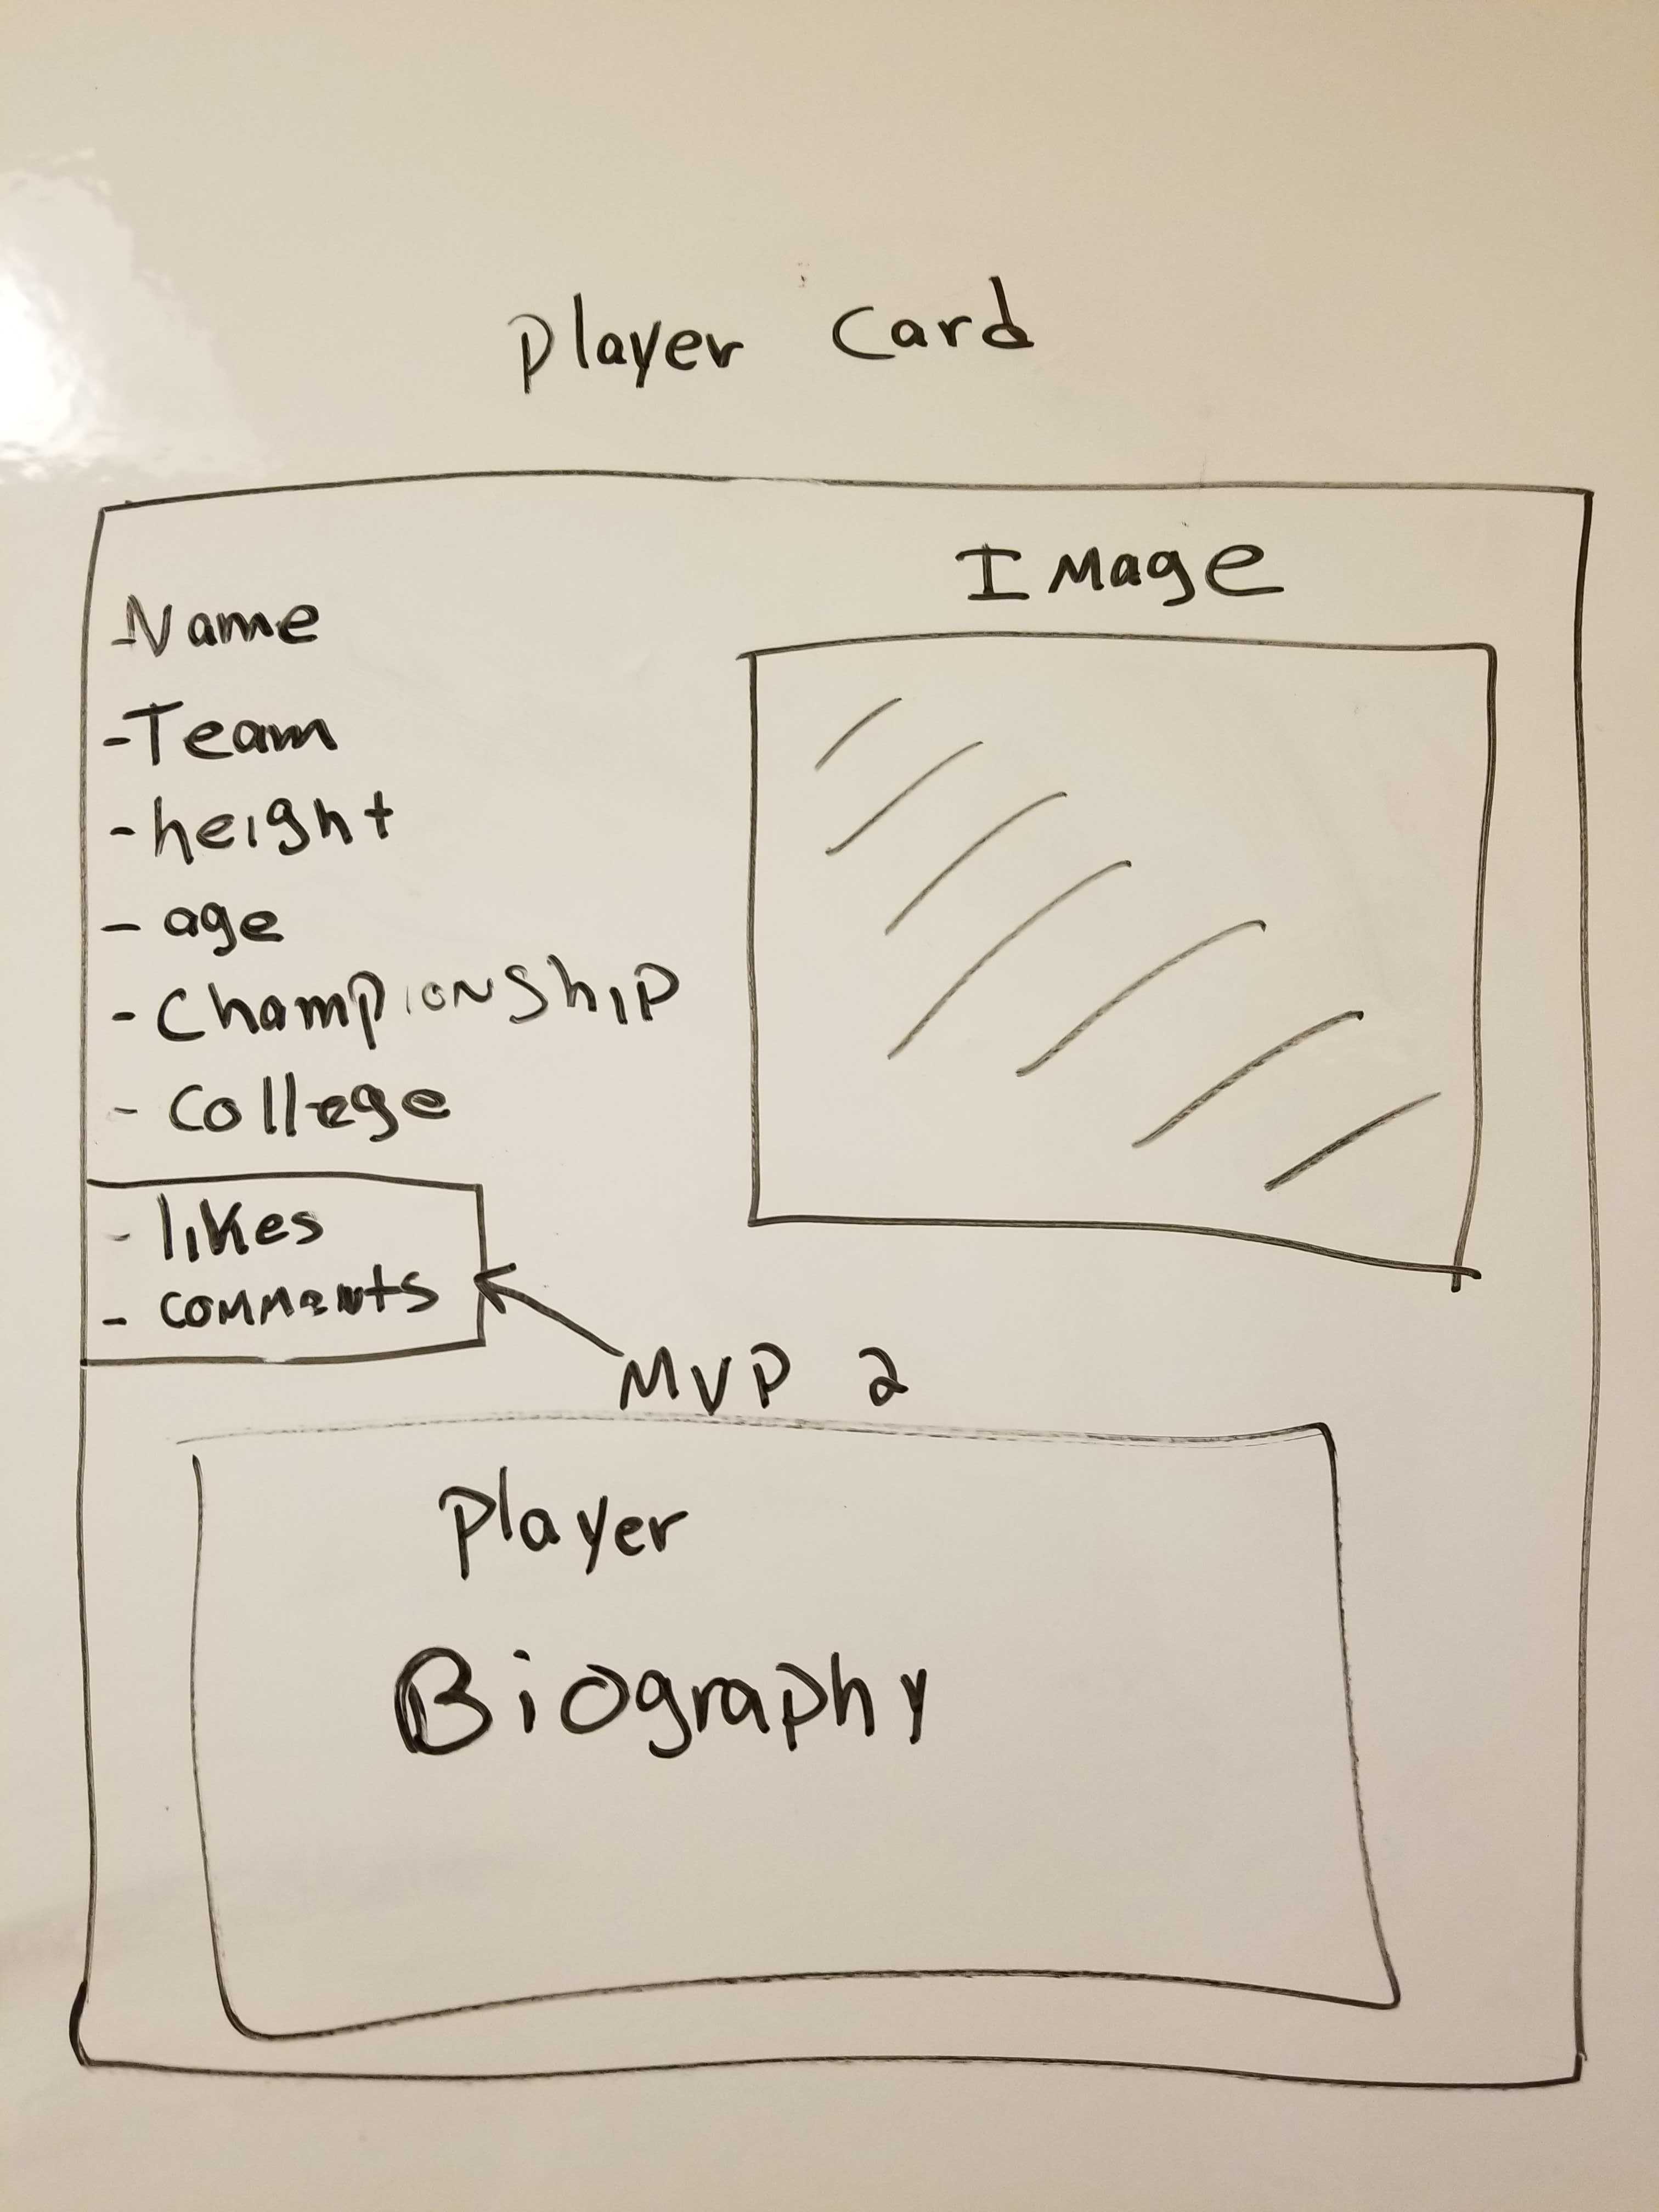 Player Card
Image
-Name
-Team
-height
- age
- Championship
- College
- likes
- comments
MVP 2
Player
Biography